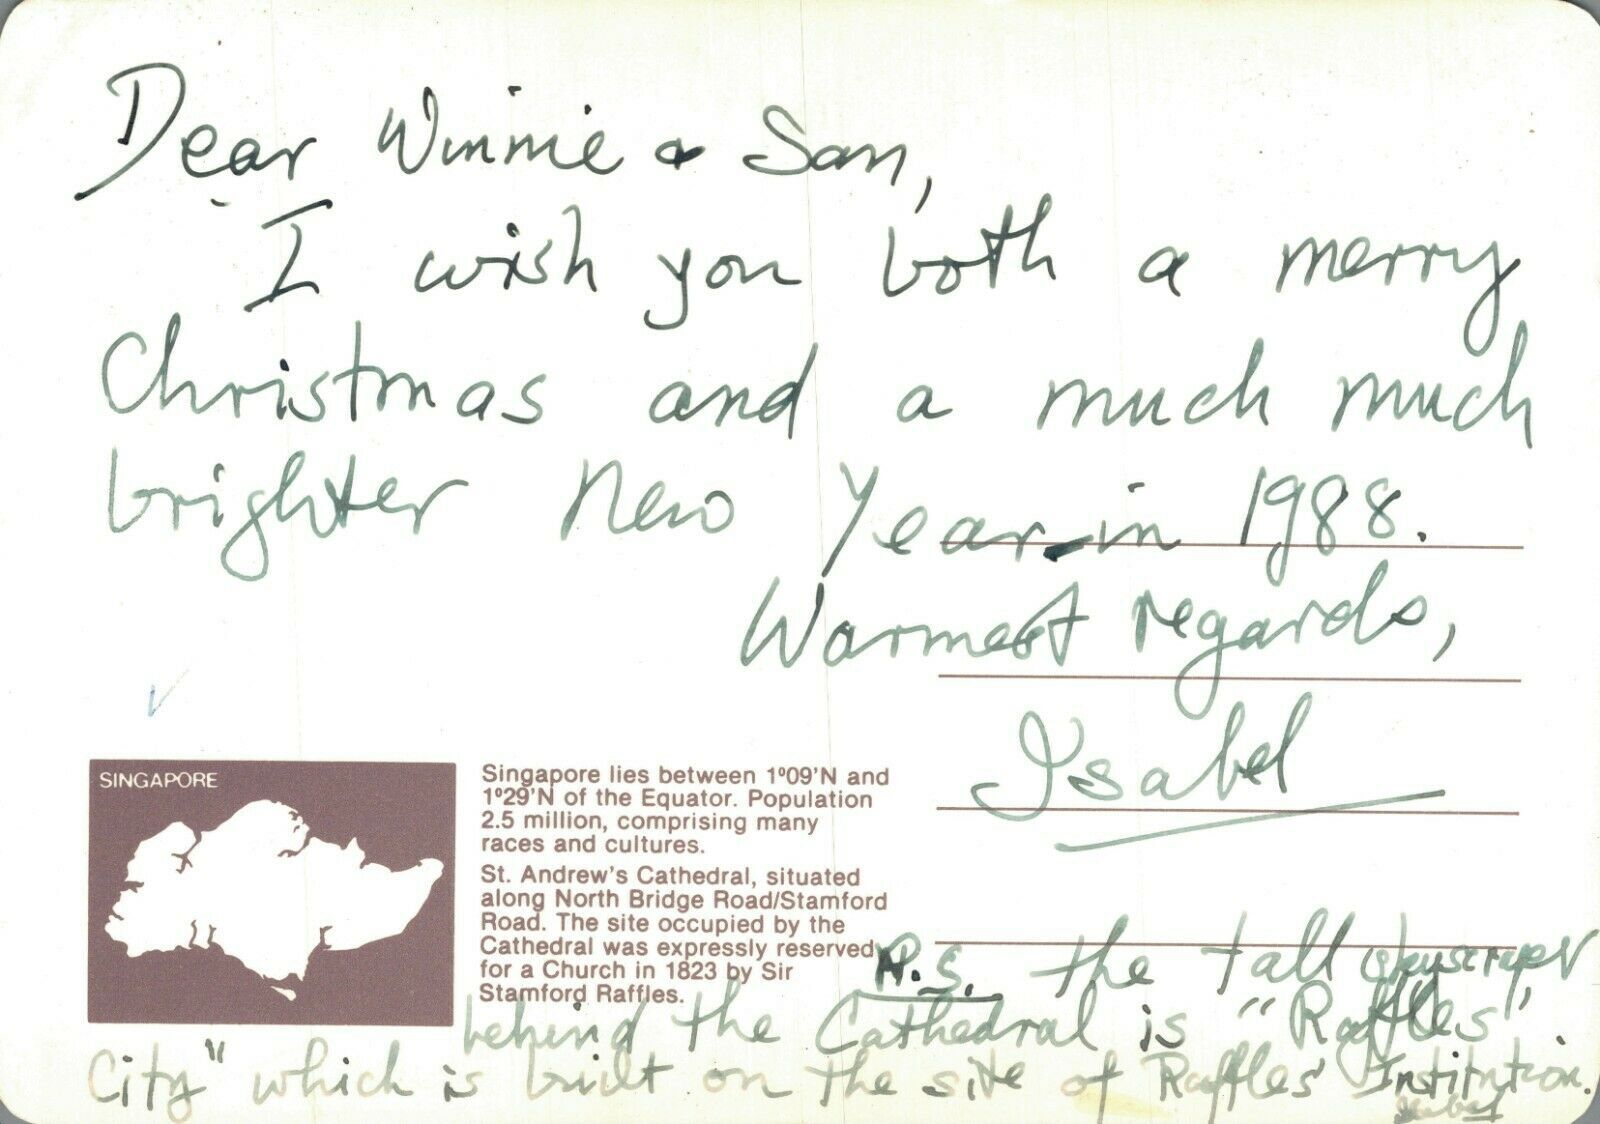 Dear Winnie & San,
I wish you both a merry
Christmas and a much much
brighter New Year in 1988.
Warmest regards,
Isabel
SINGAPORE
Singapore lies between 1°09'N and
1°29'N of the Equator. Population
2.5 million, comprising many
races and cultures.
St. Andrew's Cathedral, situated
along North Bridge Road/Stamford
Road. The site occupied by the
Cathedral was expressly reserved
for a Church in 1823 by Sir
Stamford Raffles.
P.S. the tall skyscraper
behind the Cathedral is "Raffles
City" which is built on the site of Raffles' Institution.
Isabel